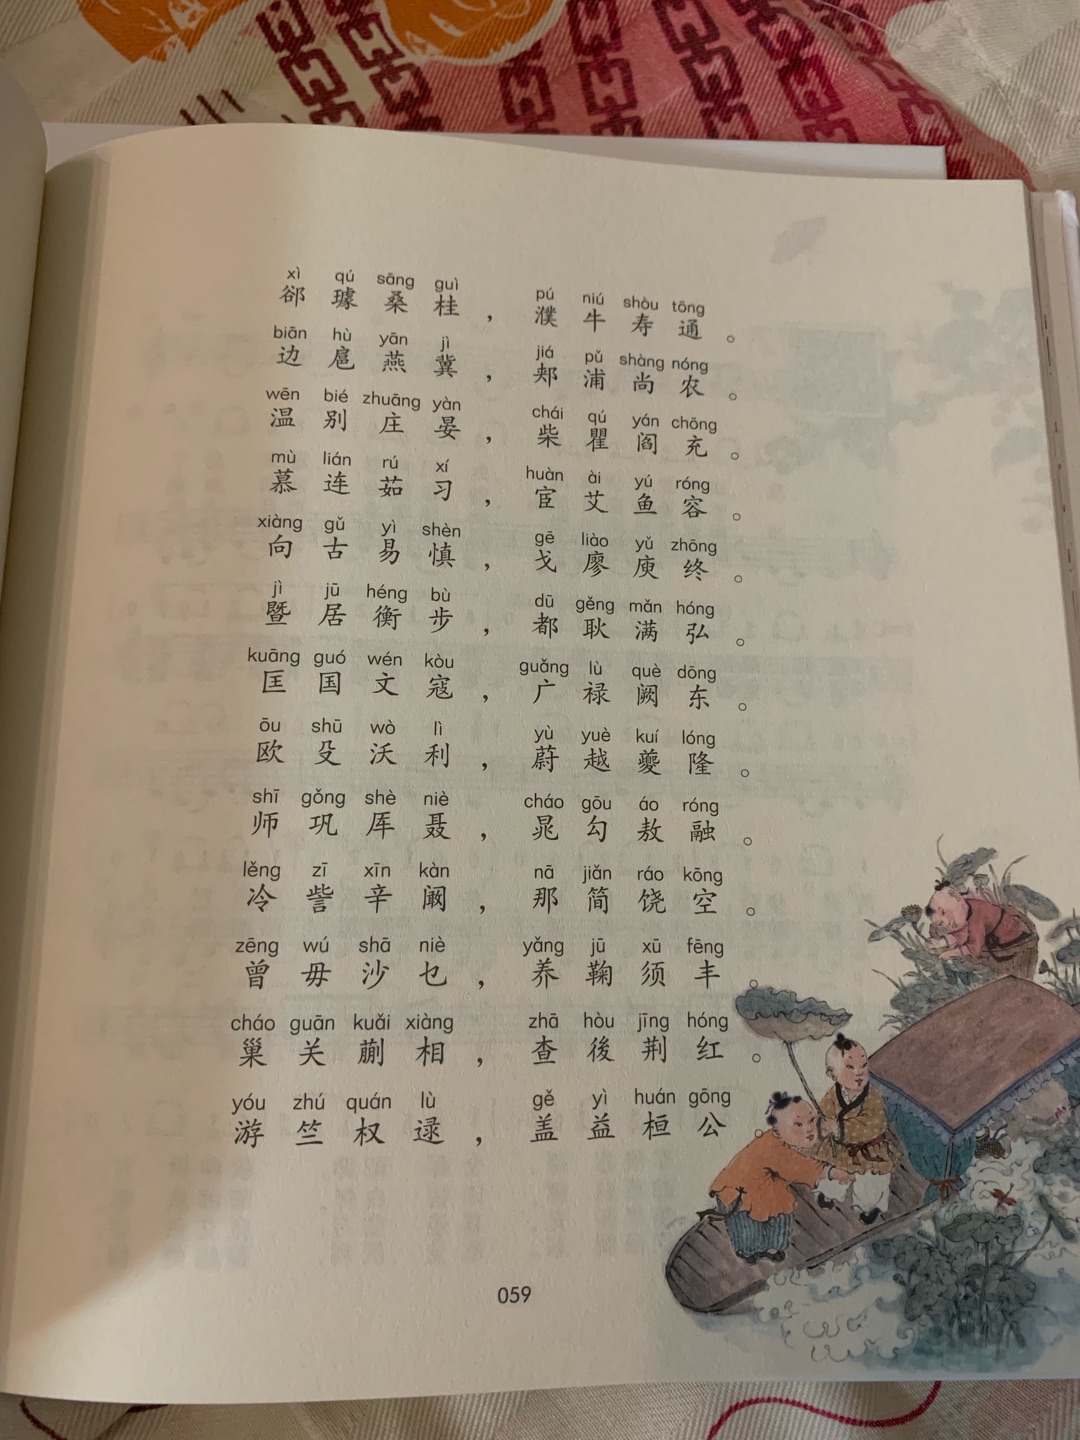 xì qú sāng guì pú niú shòu tōng
郤 璩 桑 桂 ， 濮 牛 寿 通 。
biān hù yān jì jiá pǔ shàng nóng
边 扈 燕 冀 ， 郏 浦 尚 农 。
wēn bié zhuāng yàn chái qú yán chōng
温 别 庄 晏 ， 柴 瞿 阎 充 。
mù lián rú xí huàn ài yú róng
慕 连 茹 习 ， 宦 艾 鱼 容 。
xiàng gǔ yì shèn gē liào yǔ zhōng
向 古 易 慎 ， 戈 廖 庾 终 。
jì jū héng bù dū gěng mǎn hóng
暨 居 衡 步 ， 都 耿 满 弘 。
kuāng guó wén kòu guǎng lù què dōng
匡 国 文 寇 ， 广 禄 阙 东 。
ōu shū wò lì yù yuè kuí lóng
欧 殳 沃 利 ， 蔚 越 夔 隆 。
shī gǒng shè niè cháo gōu áo róng
师 巩 厍 聂 ， 晁 勾 敖 融 。
lěng zī xīn kàn nā jiǎn ráo kōng
冷 訾 辛 阚 ， 那 简 饶 空 。
zēng wú shā niè yǎng jū xū fēng
曾 毋 沙 乜 ， 养 鞠 须 丰 。
cháo guān kuǎi xiàng zhā hòu jīng hóng
巢 关 蒯 相 ， 查 後 荆 红 。
yóu zhú quán lù gě yì huán gōng
游 竺 权 逯 ， 盖 益 桓 公 。
059